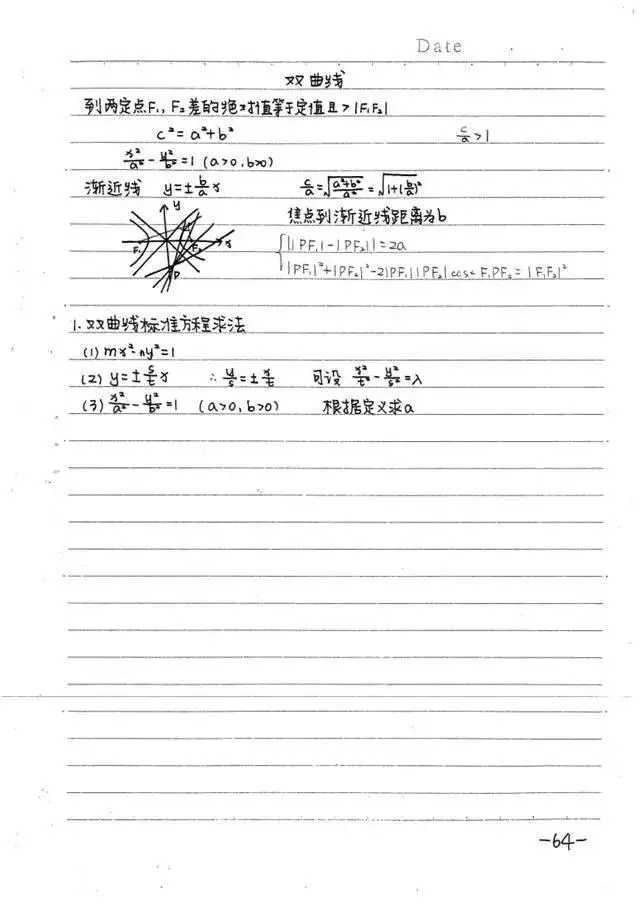 Date
双曲线
到两定点F₁,F₂差的绝对值等于定值且>|F₁F₂|
c²=a²+b² c/a>1
x²/a²-y²/b²=1(a>0,b>0)
渐近线 y=±b/a x c/a=√((a²+b²)/a²)=√(1+(b/a)²)
y
焦点到渐近线距离为b
F₁ F₂ x
||PF₁|-|PF₂||=2a
P
|PF₁|²+|PF₂|²-2|PF₁||PF₂|cos∠F₁PF₂=|F₁F₂|²
1.双曲线标准方程求法
(1) mx²-ny²=1
(2) y=±s/t x ∴y/s=±x/t 可设 x²/t²-y²/s²=λ
(3) x²/a²-y²/b²=1 (a>0,b>0) 根据定义求a
-64-